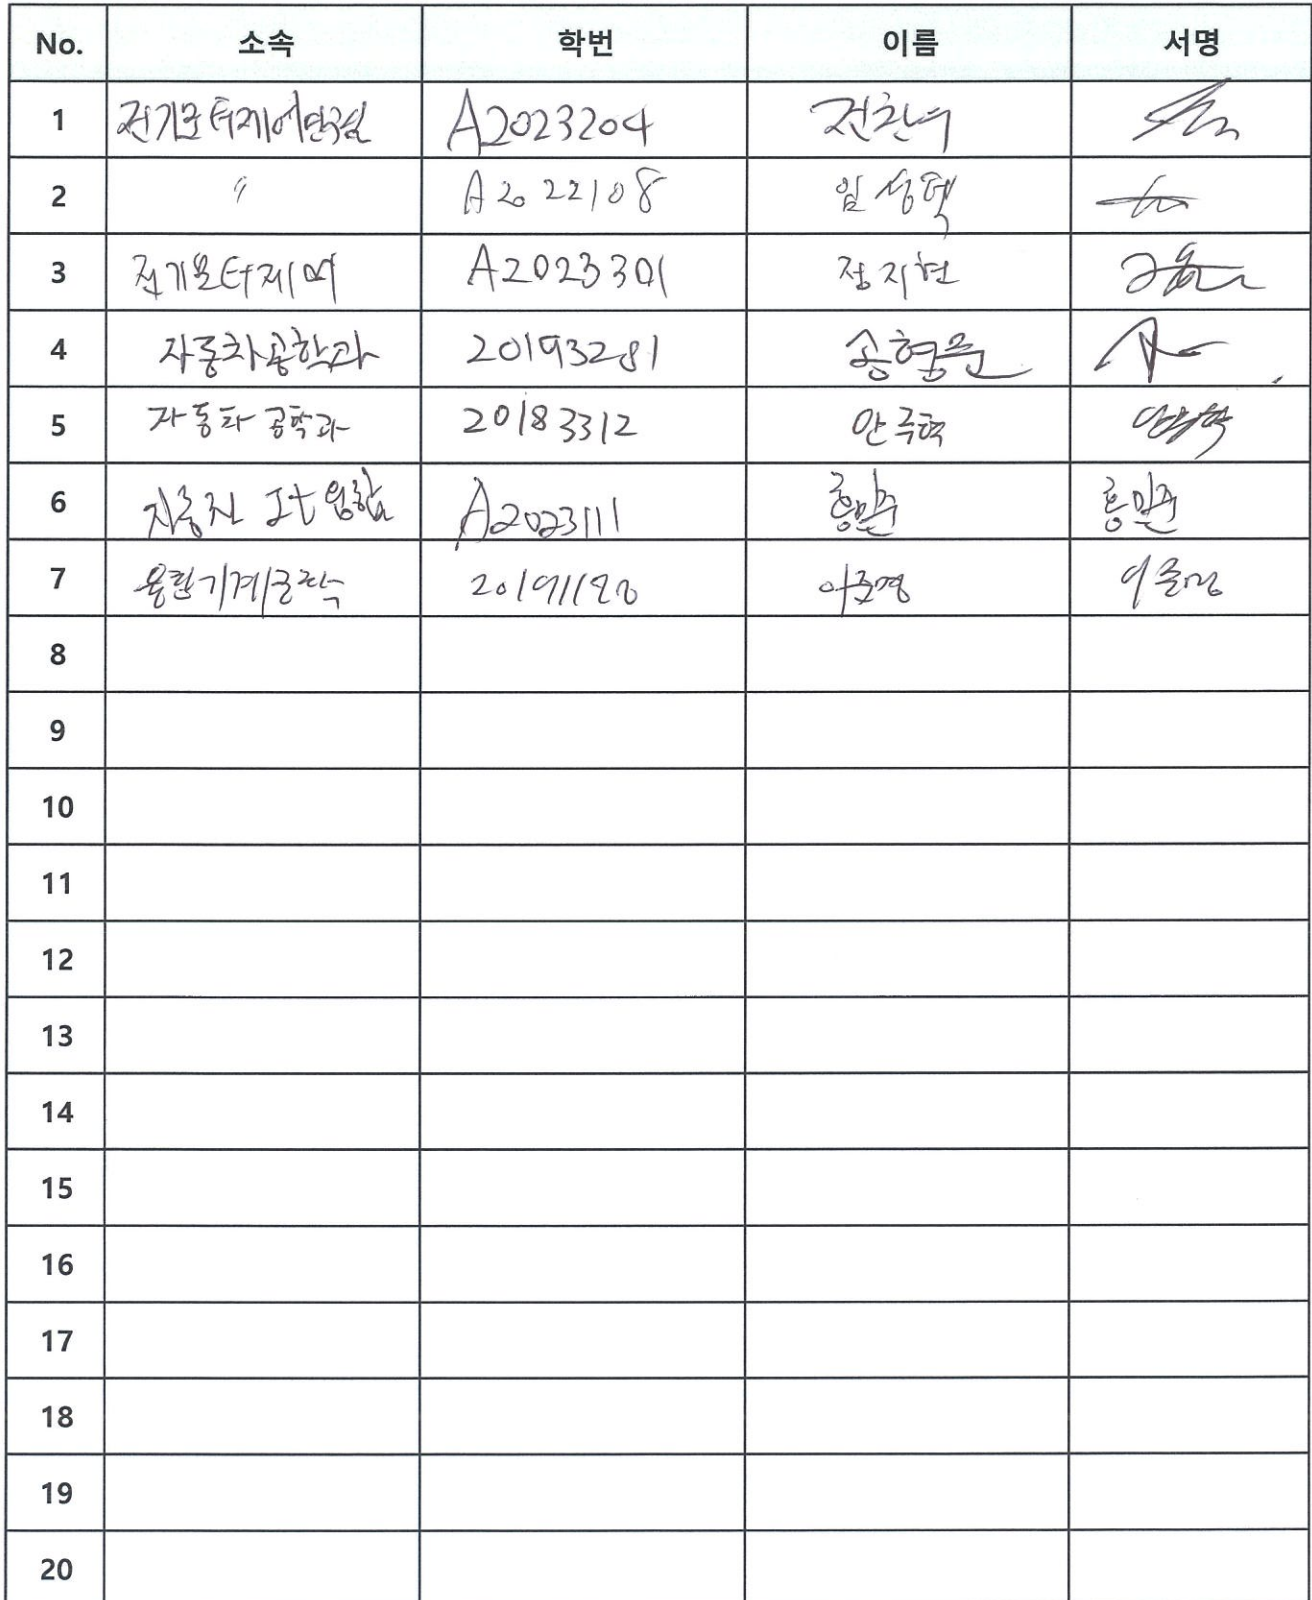 No. 소속 학번 이름 서명
1 전기모터제어연구실 A2023204
2 〃 A2022108 임성혁
3 전기모터제어 A2023301 정지현
4 자동차공학과 20193281 송형준
5 자동차공학과 20183312 안국혁
6 자동차 It 융합 A2023111 홍민준 홍민준
7 융합기계공학 이준경 이준경
8
9
10
11
12
13
14
15
16
17
18
19
20